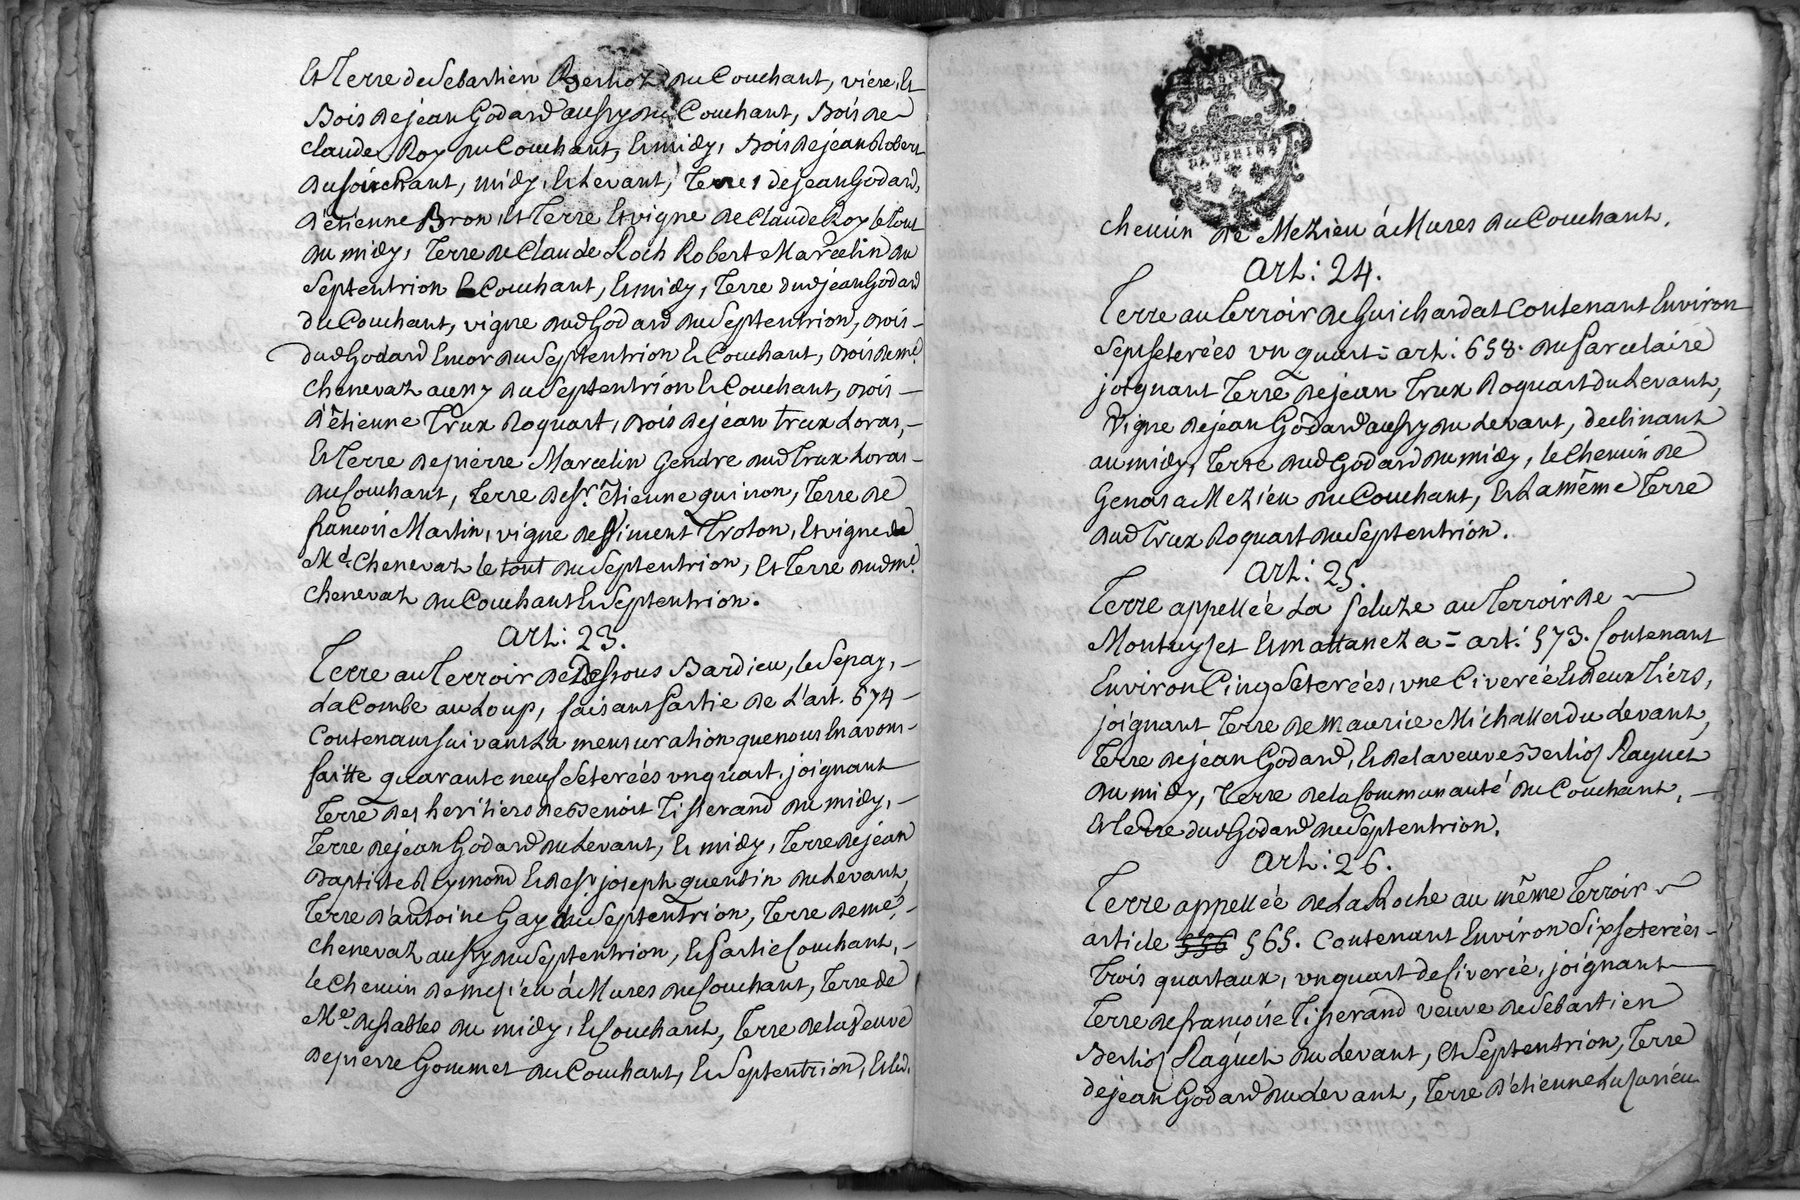 Et Terre de Sebastien Berlioz du Couchant, viere, Et
Bois de jean Godard aussy du Couchant, Bois de
claude Roy du Couchant, Et midy, Bois de jean Robert
du souchant, midy, Et Levant, Terre, de jean Godard,
d'etienne Bron, Et Terre Et vigne de Claude Roy le tout
du midy, Terre de Claude Roch Robert Marcelin du
Septentrion Et Couchant, Et midy, Terre dud jean Godard
du Couchant, vigne dud Godard du Septentrion, Bois -
dud Godard Encor du Septentrion Et Couchant, Bois de me.
Chenevaz aussy du Septentrion Et Couchant, Bois -
d'étienne Trux Roquart, Bois de jean trux Loras, -
Et Terre de pierre Marcelin Gendre dud Trux Loras -
du souchant, Terre de sr. Etienne quinon, Terre de
francois Martin, vigne de Siment Troton, Et vigne de
Md. Chenevaz le tout du Septentrion, Et Terre dud me.
Chenevaz du Couchant Et Septentrion.
Art: 23.
Terre au Terroir de Dessous Bardieu, le Sepay, -
La Combe au Loup, faisant Partie de L'art. 674 -
Contenant suivant La mensuration que nous En avons -
faitte quarante neuf Seterées un quart, joignant
Terre des heritiers de Benoit Tisserand du midy, -
Terre de jean Godard du Levant, Et midy, Terre de jean
Baptiste Reymond Et de sr. joseph quentin du Levant,
Terre d'antoine Gay du Septentrion, Terre de me. -
Chenevaz aussy du Septentrion, Et Partie Couchant, -
le Chemin de mezieu à Mures du Couchant, Terre de
Me. desables du midy, Et Couchant, Terre de la Veuve
de pierre Gommet du Couchant, Et Septentrion, Et led.
DAUPHINÉ
chemin de Mezieu à Mures du Couchant.
Art: 24.
Terre au Terroir de Guichardat Contenant Environ
Sept seterées un quart = art: 658. du Parcelaire
joignant Terre de jean Trux Roquart du Levant,
Vigne de jean Godard aussy du Levant, declinant
au midy, Terre dud Godard du midy, le Chemin de
Genas a Mezieu du Couchant, Et La même Terre
dud Trux Roquart du Septentrion.
Art: 25.
Terre appellée La Seluze au Terroir de
Montuyzet Et mattaneza = art: 573. Contenant
Environ Cinq Seterées, une Civerée Et deux Tiers,
joignant Terre de Maurice Michallet du Levant,
Terre de jean Godard, Et de la veuve Berlioz Raguet
du midy, Terre de la Communauté du Couchant, -
Et Terre dud Godard du Septentrion.
Art: 26.
Terre appellée de La Roche au même Terroir
article 556 565. Contenant Environ Six seterées -
Trois quartaux, un quart de Civerée, joignant
Terre de françoise Tisserand veuve de Sebastien
Berlioz Raguet du Levant, et Septentrion, Terre
de jean Godard du Levant, Terre d'étienne Luzarieu